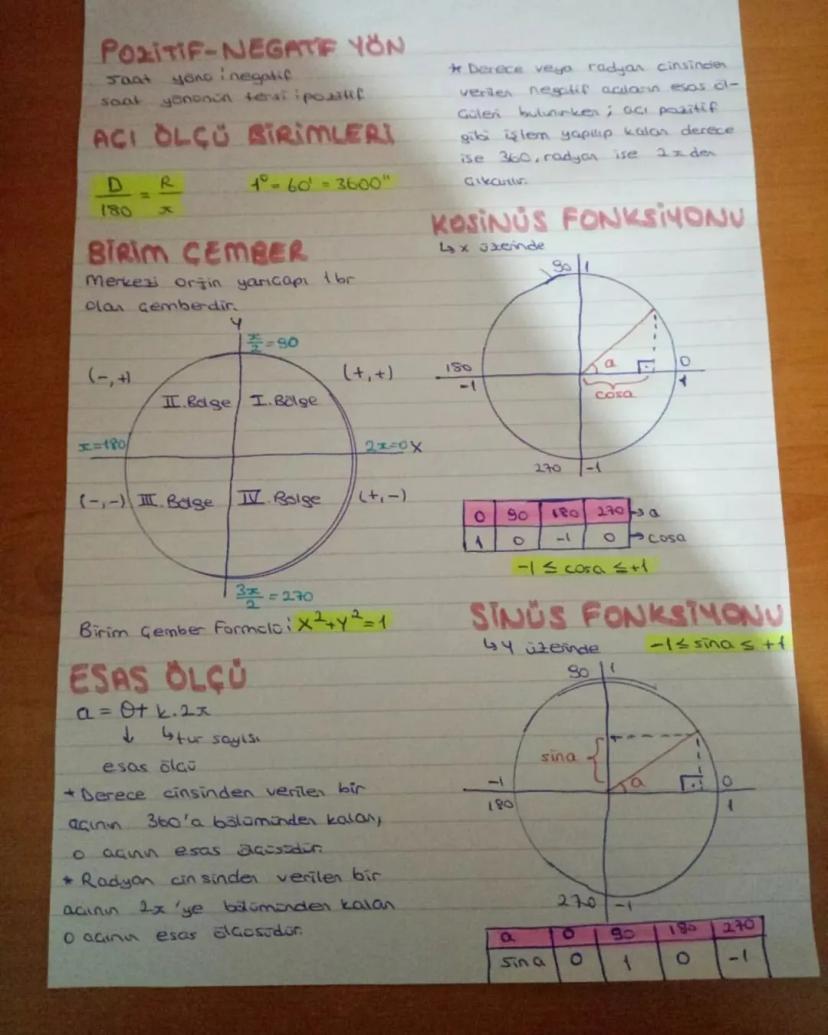 POZİTİF-NEGATİF YÖN
saat yönü : negatif
saat yönünün tersi : pozitif
AÇI ÖLÇÜ BİRİMLERİ
D/180 = R/π
1° = 60' = 3600"
BİRİM ÇEMBER
Merkezi orjin yarıçapı 1 br
olan çemberdir.
y
π/2 = 90
(-,+)
(+,+)
II. Bölge
I. Bölge
π=180
2π=0 X
(-,-)
III. Bölge
IV. Bölge
(+,-)
3π/2 = 270
Birim Çember Formülü : x²+y²=1
ESAS ÖLÇÜ
a = θ + k.2π
↓ ↳ tur sayısı
esas ölçü
* Derece cinsinden verilen bir
açının 360'a bölümünden kalan,
o açının esas ölçüsüdür.
* Radyan cinsinden verilen bir
açının 2π'ye bölümünden kalan
o açının esas ölçüsüdür.
* Derece veya radyan cinsinden
verilen negatif açıların esas öl-
çüleri bulunurken ; açı pozitif
gibi işlem yapılıp kalan derece
ise 360, radyan ise 2π den
çıkarılır.
KOSİNÜS FONKSİYONU
↳ x üzerinde
90 1
180
-1
a
0
1
cosa
270 -1
0 90 180 270 → a
1 0 -1 0 → cosa
-1 ≤ cosa ≤ +1
SİNÜS FONKSİYONU
↳ y üzerinde
-1 ≤ sina ≤ +1
90 1
sina
a
-1
180
0
1
270 -1
a 0 90 180 270
sina 0 1 0 -1